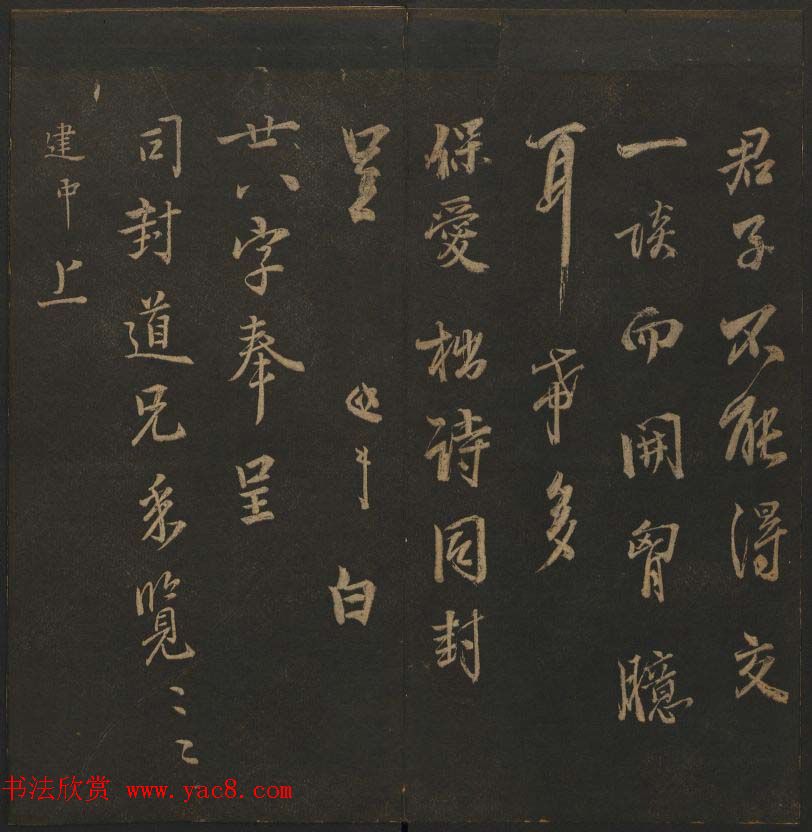 君子不能得交
一談而開胷臆
耳 幸多
保愛 拙詩同封
呈 建中 白
廿八字奉呈
司封道兄采覽
建中上
书法欣赏 www.yac8.com